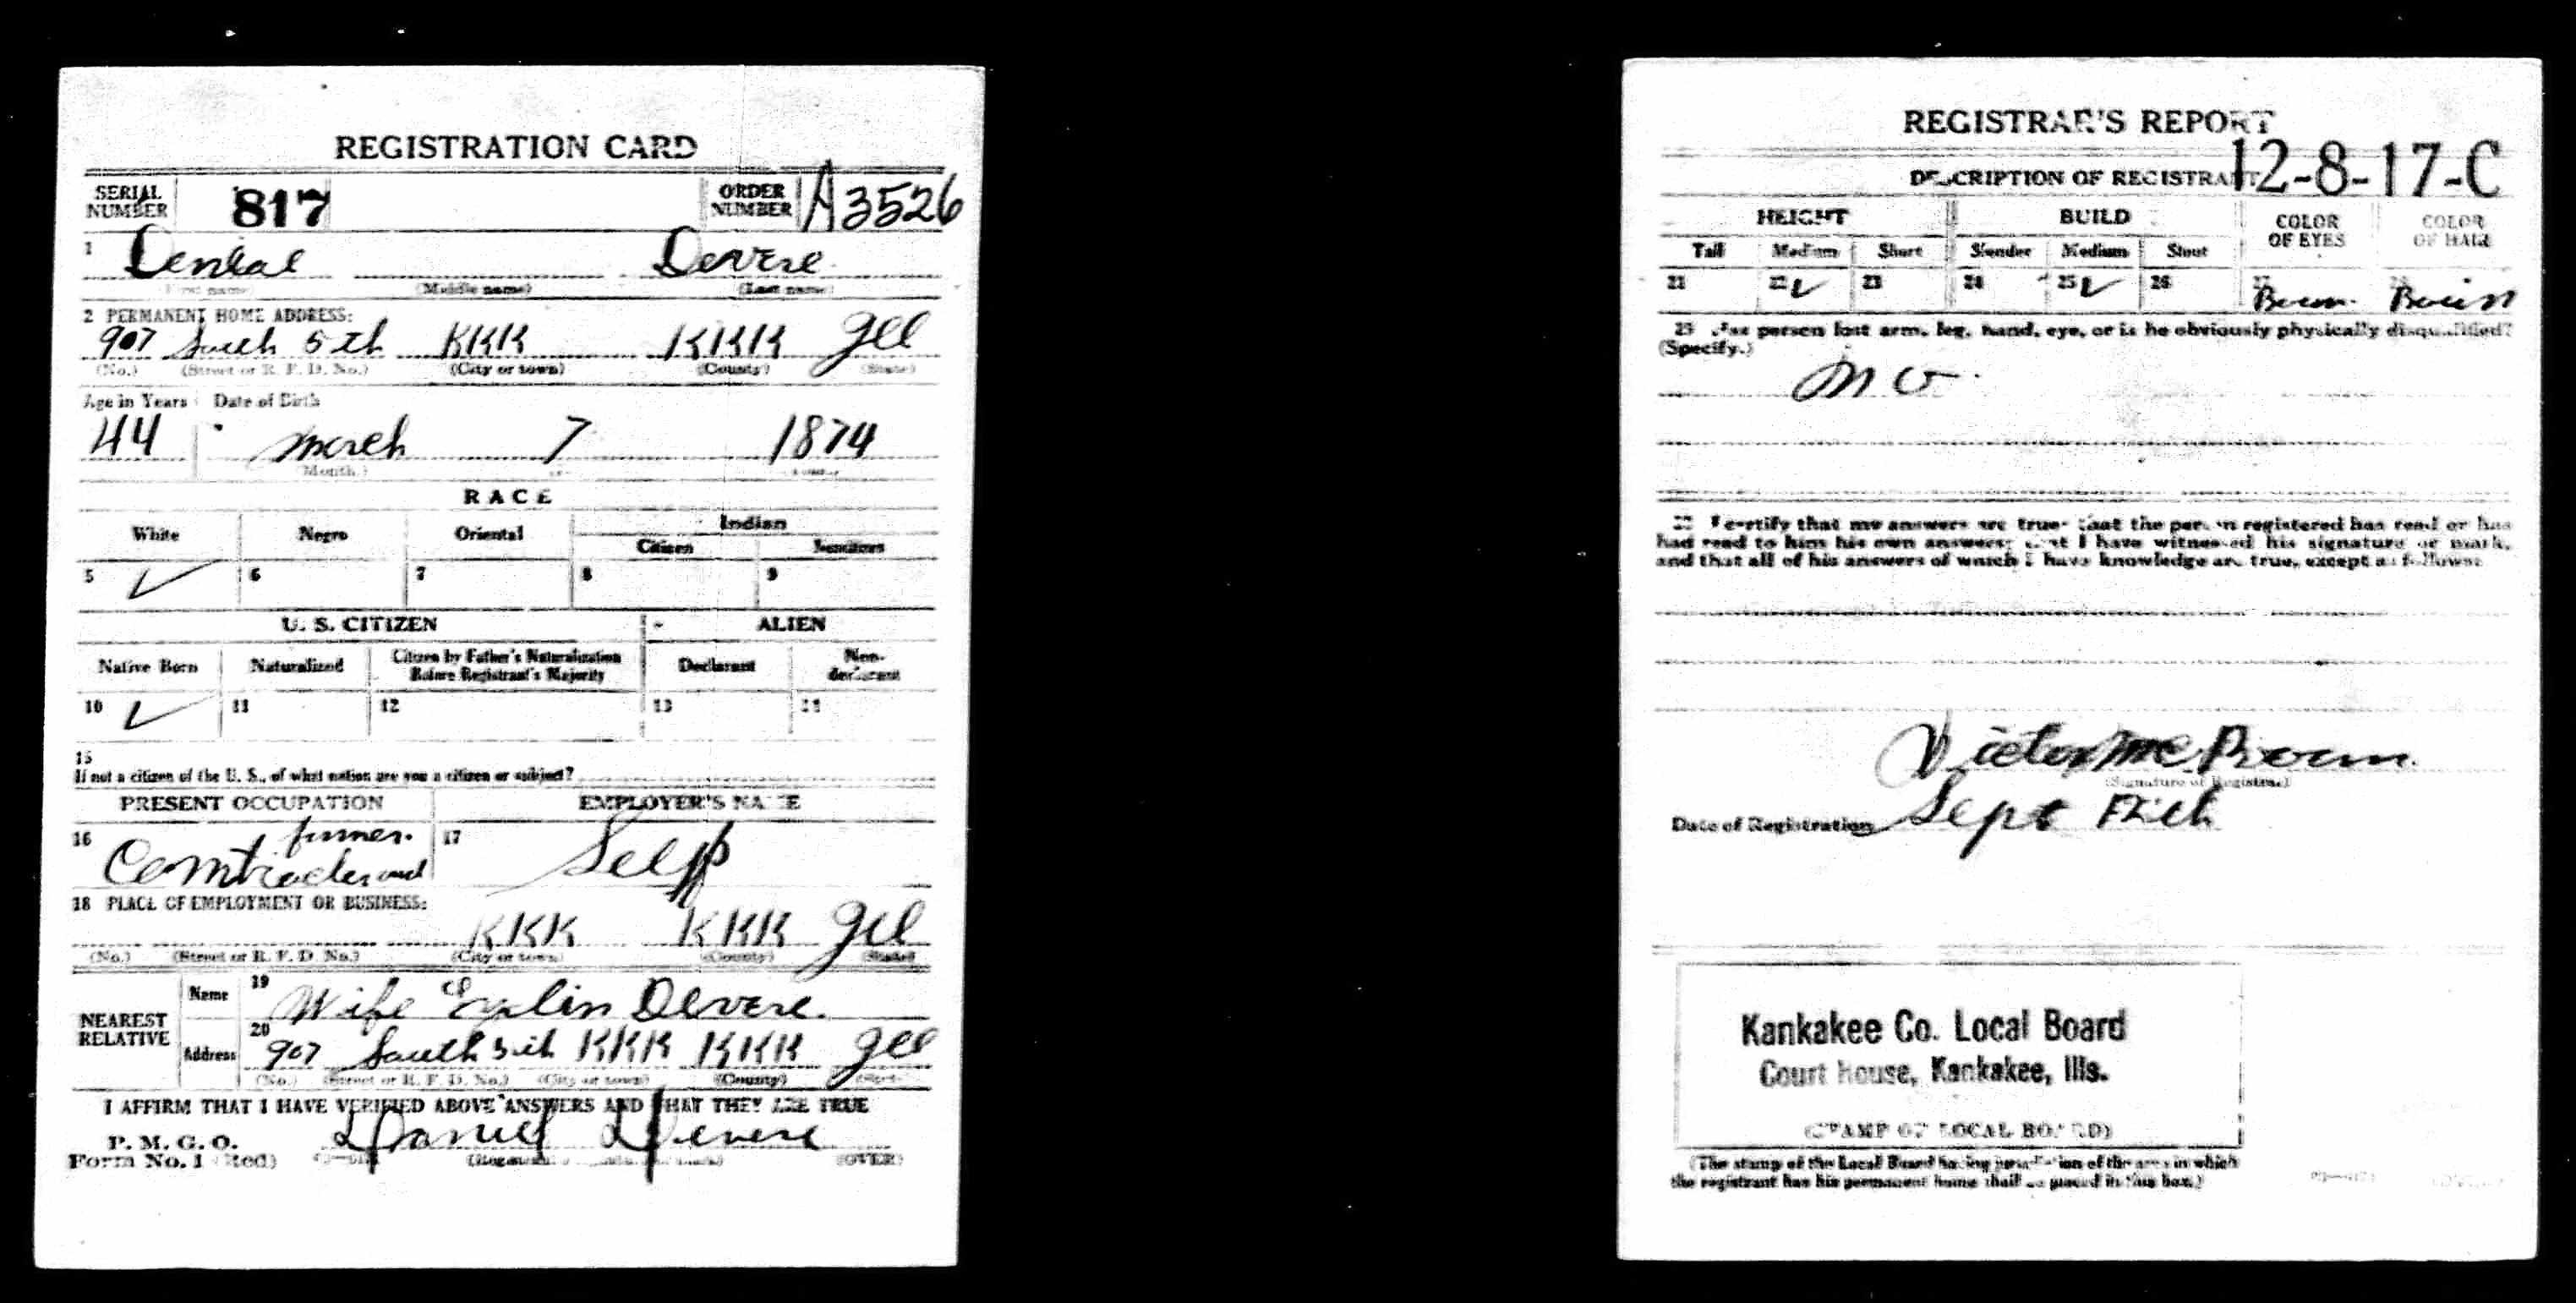 REGISTRATION CARD
SERIAL NUMBER 817 ORDER NUMBER A3526
1 Denial Devere
(First name) (Middle name) (Last name)
2 PERMANENT HOME ADDRESS:
907 South 5th KKK KKK Ill
(No.) (Street or R. F. D. No.) (City or town) (County) (State)
Age in Years Date of Birth
44 March 7 1874
(Month.)
RACE
White Negro Oriental Indian
Citizen
5 ✓ 6 7 8 9
U. S. CITIZEN ALIEN
Native Born Naturalized Citizen by Father's Naturalization Before Registrant's Majority Declarant Non-declarant
10 ✓ 11 12 13 14
15
If not a citizen of the U. S., of what nation are you a citizen or subject?
PRESENT OCCUPATION EMPLOYER'S NAME
16 Contractor and farmer. 17 Self
18 PLACE OF EMPLOYMENT OR BUSINESS:
KKK KKK Ill
(No.) (Street or R. F. D. No.) (City or town) (County) (State)
NEAREST RELATIVE
Name 19 Wife Devere.
Address 20 907 South 5th KKK KKK Ill
(No.) (Street or R. F. D. No.) (City or town) (County)
I AFFIRM THAT I HAVE VERIFIED ABOVE ANSWERS AND THAT THEY ARE TRUE
P. M. G. O.
Form No. 1 (Red) Daniel Devere (OVER)
REGISTRAR'S REPORT
12-8-17-C
DESCRIPTION OF REGISTRANT
HEIGHT BUILD COLOR OF EYES COLOR OF HAIR
Tall Medium Short Slender Medium Stout
21 22 ✓ 23 24 25 ✓ 26 27
29 Has person lost arm, leg, hand, eye, or is he obviously physically disqualified?
(Specify.)
no.
I certify that my answers are true; that the person registered has read or has
had read to him his own answers; that I have witnessed his signature or mark,
and that all of his answers of which I have knowledge are true, except as follows:
Victor
(Signature of Registrar)
Date of Registration Sept 12th
Kankakee Co. Local Board
Court House, Kankakee, Ills.
(STAMP OF LOCAL BOARD)
(The stamp of the Local Board having jurisdiction of the area in which
the registrant has his permanent home shall be placed in this box.)